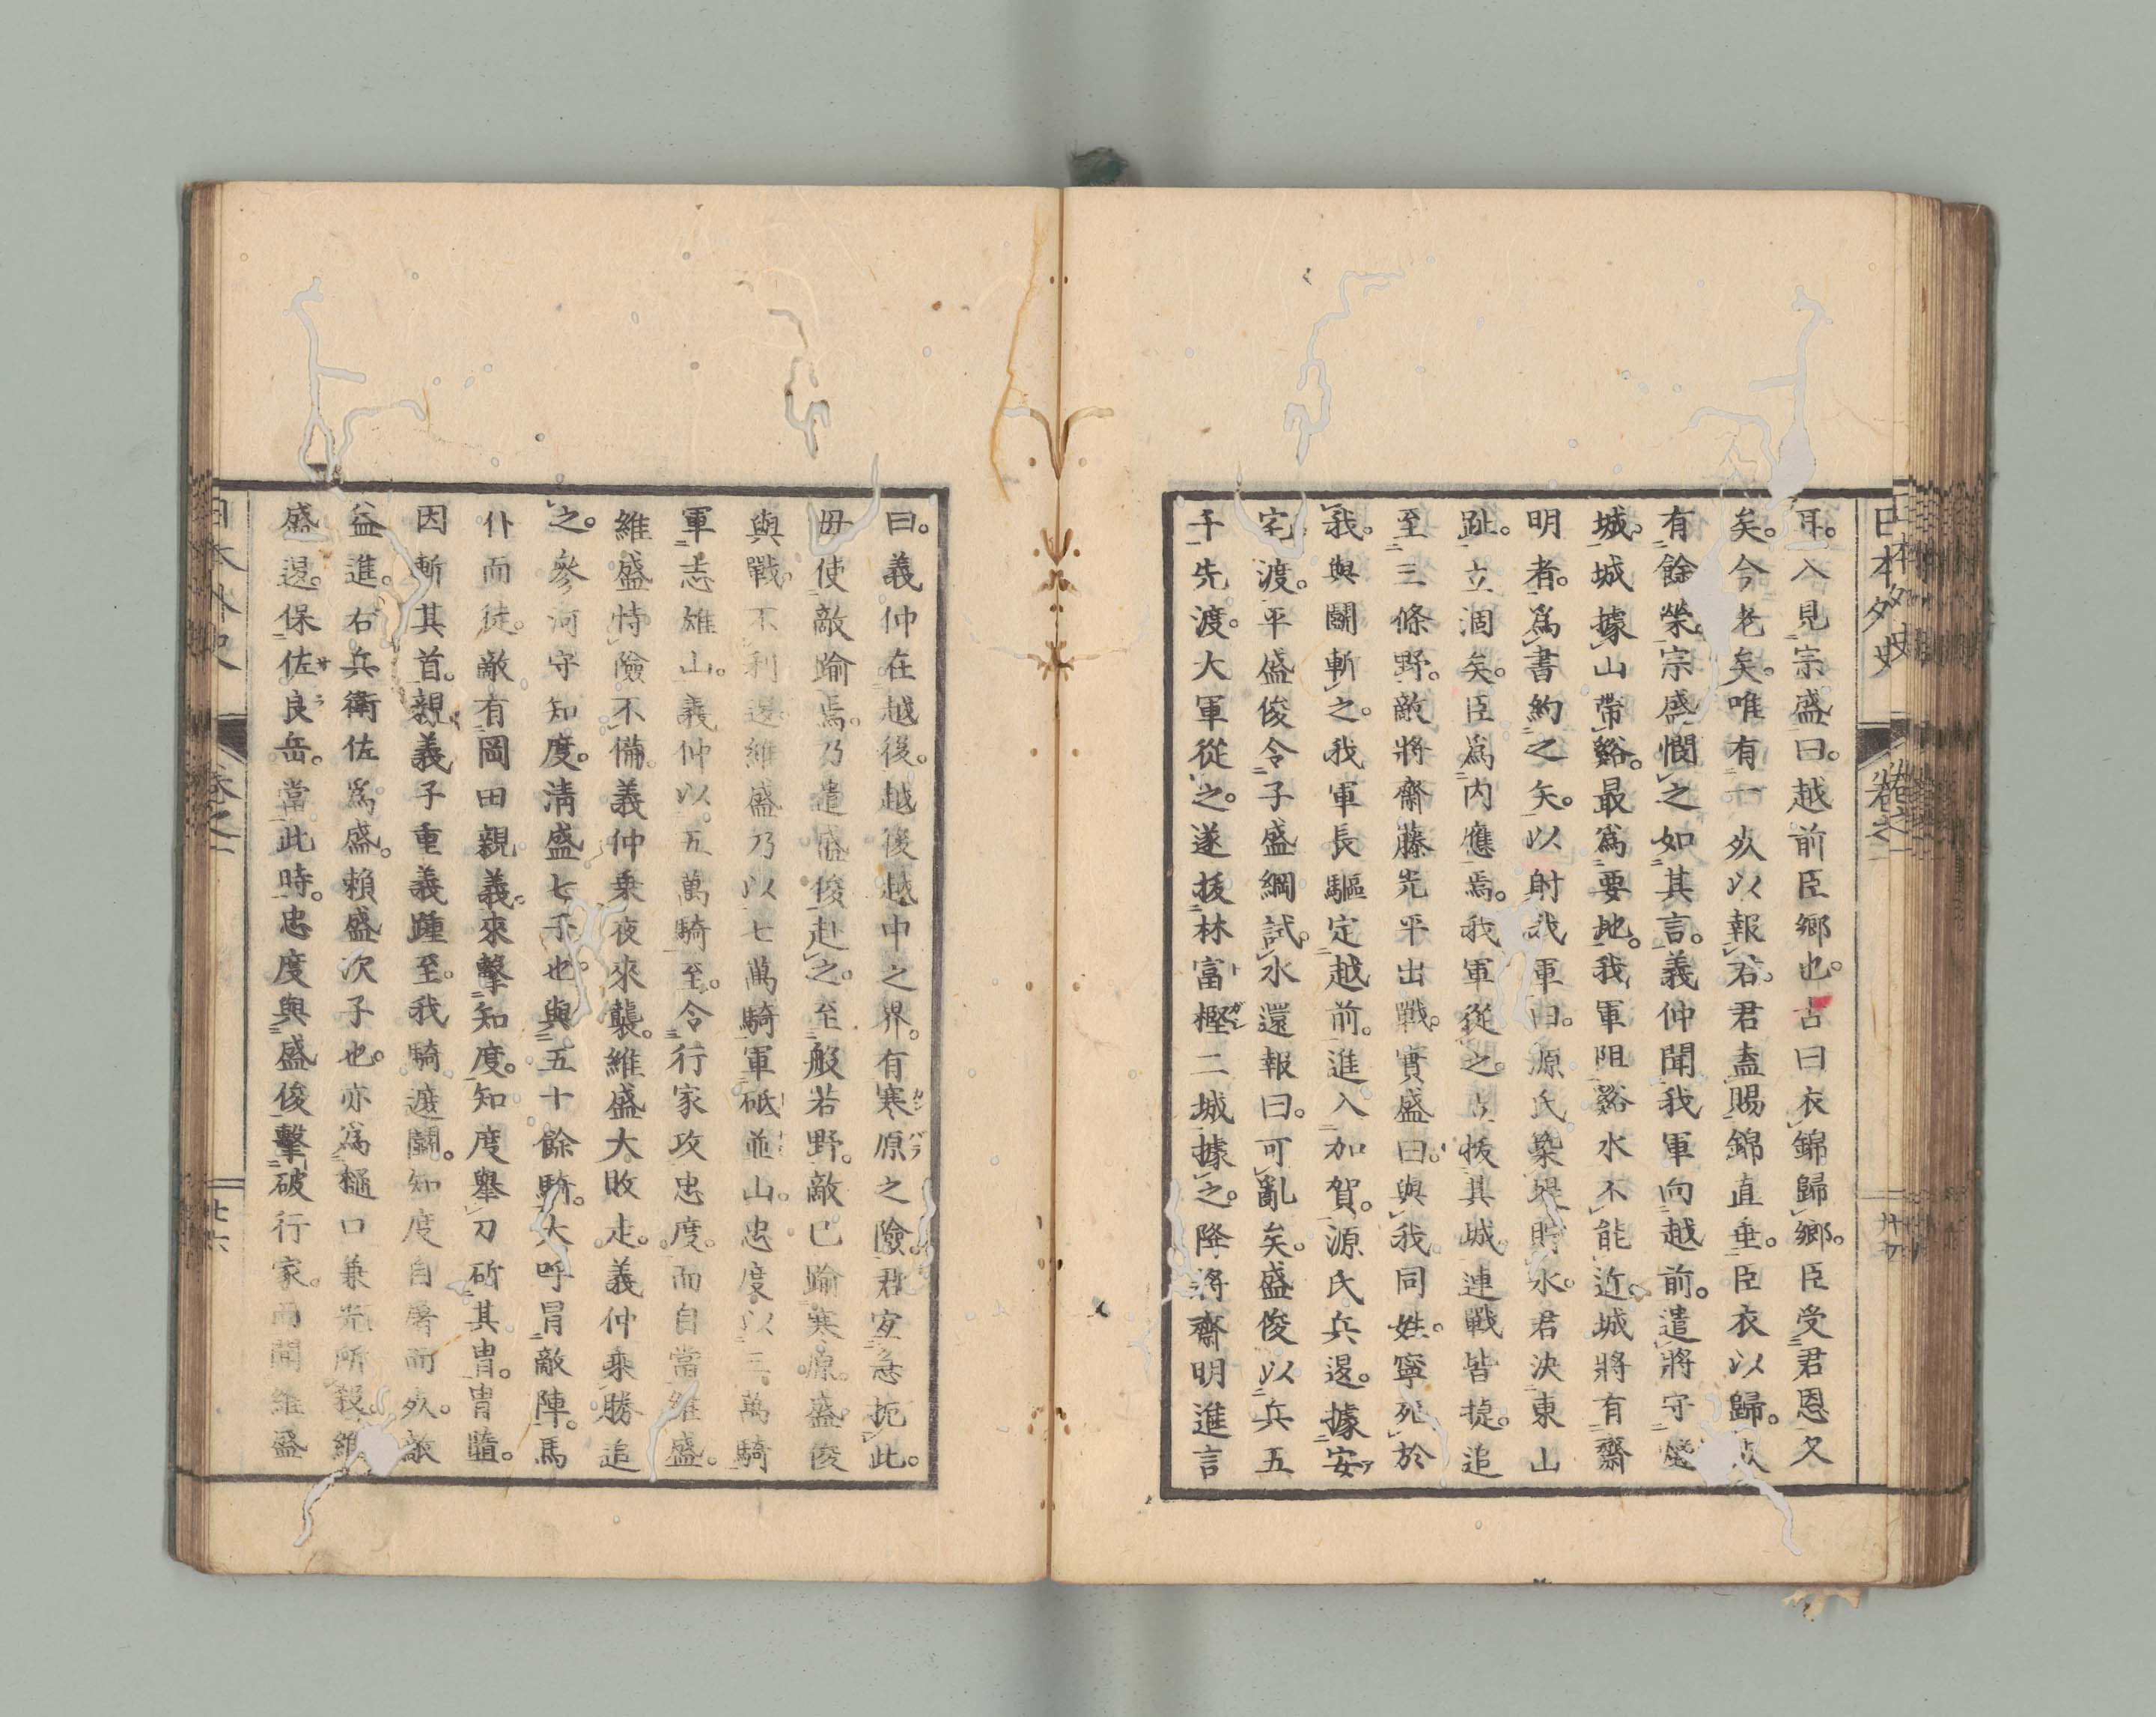 日本外史 卷之一
耳。入見宗盛曰。越前臣鄉也。古曰衣錦歸鄉。臣受君恩久
矣。今老矣。唯有一死以報君。君盍賜錦直垂。臣衣以歸。死
有餘榮。宗盛憫之如其言。義仲聞我軍向越前。遣將守燧
城。城據山帶谿。最爲要地。我軍阻谿水不能近。城將有齋
明者。爲書約之矢。以射我軍曰。源氏築堤貯水。君決東山
趾。立涸矣。臣爲内應焉。我軍從之。古拔其城。連戰皆捷。追
至三條野。敵將齋藤光平出戰。實盛曰。與我同姓。寧死於
我。與鬪斬之。我軍長驅定越前。進入加賀。源氏兵退。據安
宅渡。平盛俊令子盛綱試水還報曰。可亂矣。盛俊以兵五
千先渡。大軍從之。遂拔林富樫二城據之。降將齋明進言
曰。義仲在越後。越後越中之界。有寒原之險。君宜急扼此。
毋使敵踰焉。乃遣盛俊赴之。至般若野。敵已踰寒原。盛俊
與戰。不利退。維盛乃以七萬騎軍砥並山。忠度以三萬騎
軍志雄山。義仲以五萬騎至。令行家攻忠度。而自當維盛。
維盛恃險不備。義仲乗夜來襲。維盛大敗走。義仲乗勝追
之。參河守知度。清盛七子也。與五十餘騎。大呼冒敵陣。馬
仆而徒。敵有岡田親義。來擊知度。知度舉刀斫其冑。冑墮。
因斬其首。親義子重義踵至。我騎遮鬪。知度自屠而死。敵
益進。右兵衛佐爲盛。賴盛次子也。亦爲樋口兼光所殺。維
盛退保佐良岳。當此時。忠度與盛俊擊破行家。而聞維盛
日本外史 卷之一 廿六